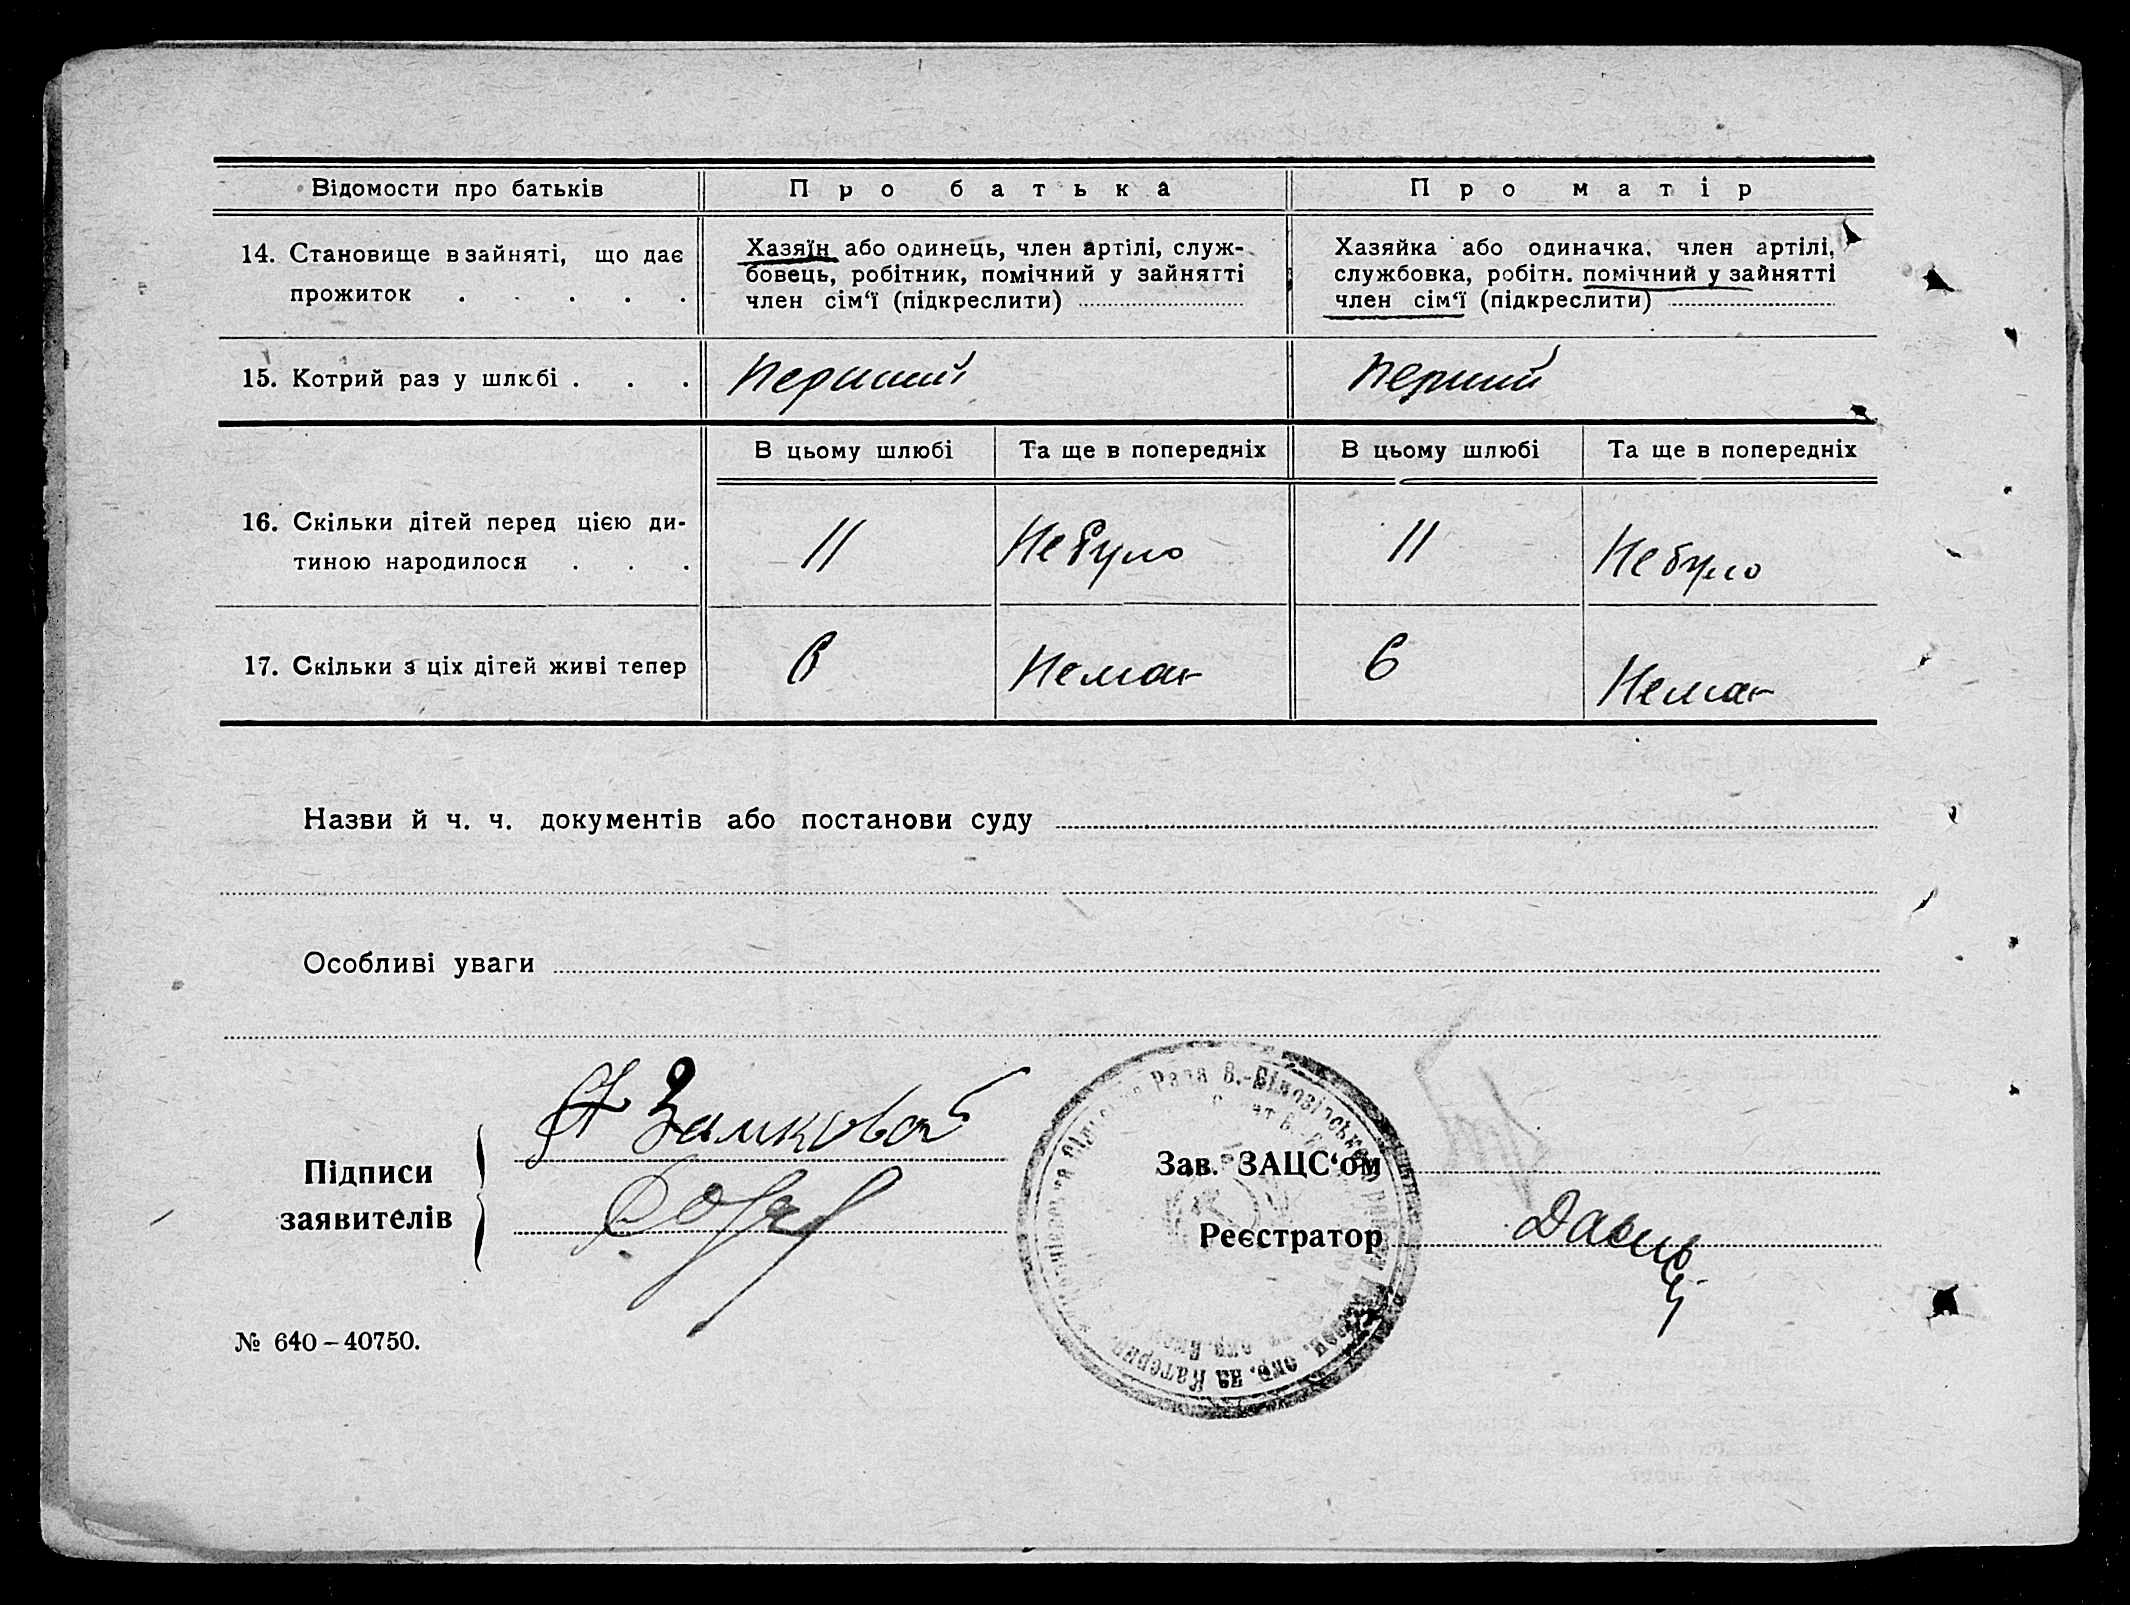 Відомости про батьків Про батька Про матір
14. Становище в зайняті, що дає прожиток . . . . .
Хазяїн або одинець, член артілі, служ-
бовець, робітник, помічний у зайнятті
член сім'ї (підкреслити)
Хазяйка або одиначка, член артілі,
службовка, робітн. помічний у зайнятті
член сім'ї (підкреслити)
15. Котрий раз у шлюбі . . . Перший Перший
В цьому шлюбі Та ще в попередніх В цьому шлюбі Та ще в попередніх
16. Скільки дітей перед цією ди-
тиною народилося . . . 11 Не було 11 Не було
17. Скільки з ціх дітей живі тепер 6 Немає 6 Немає
Назви й ч. ч. документів або постанови суду
Особливі уваги
Підписи
заявителів
А Замковой
Зав. ЗАЦС'ом
Реєстратор
№ 640-40750.